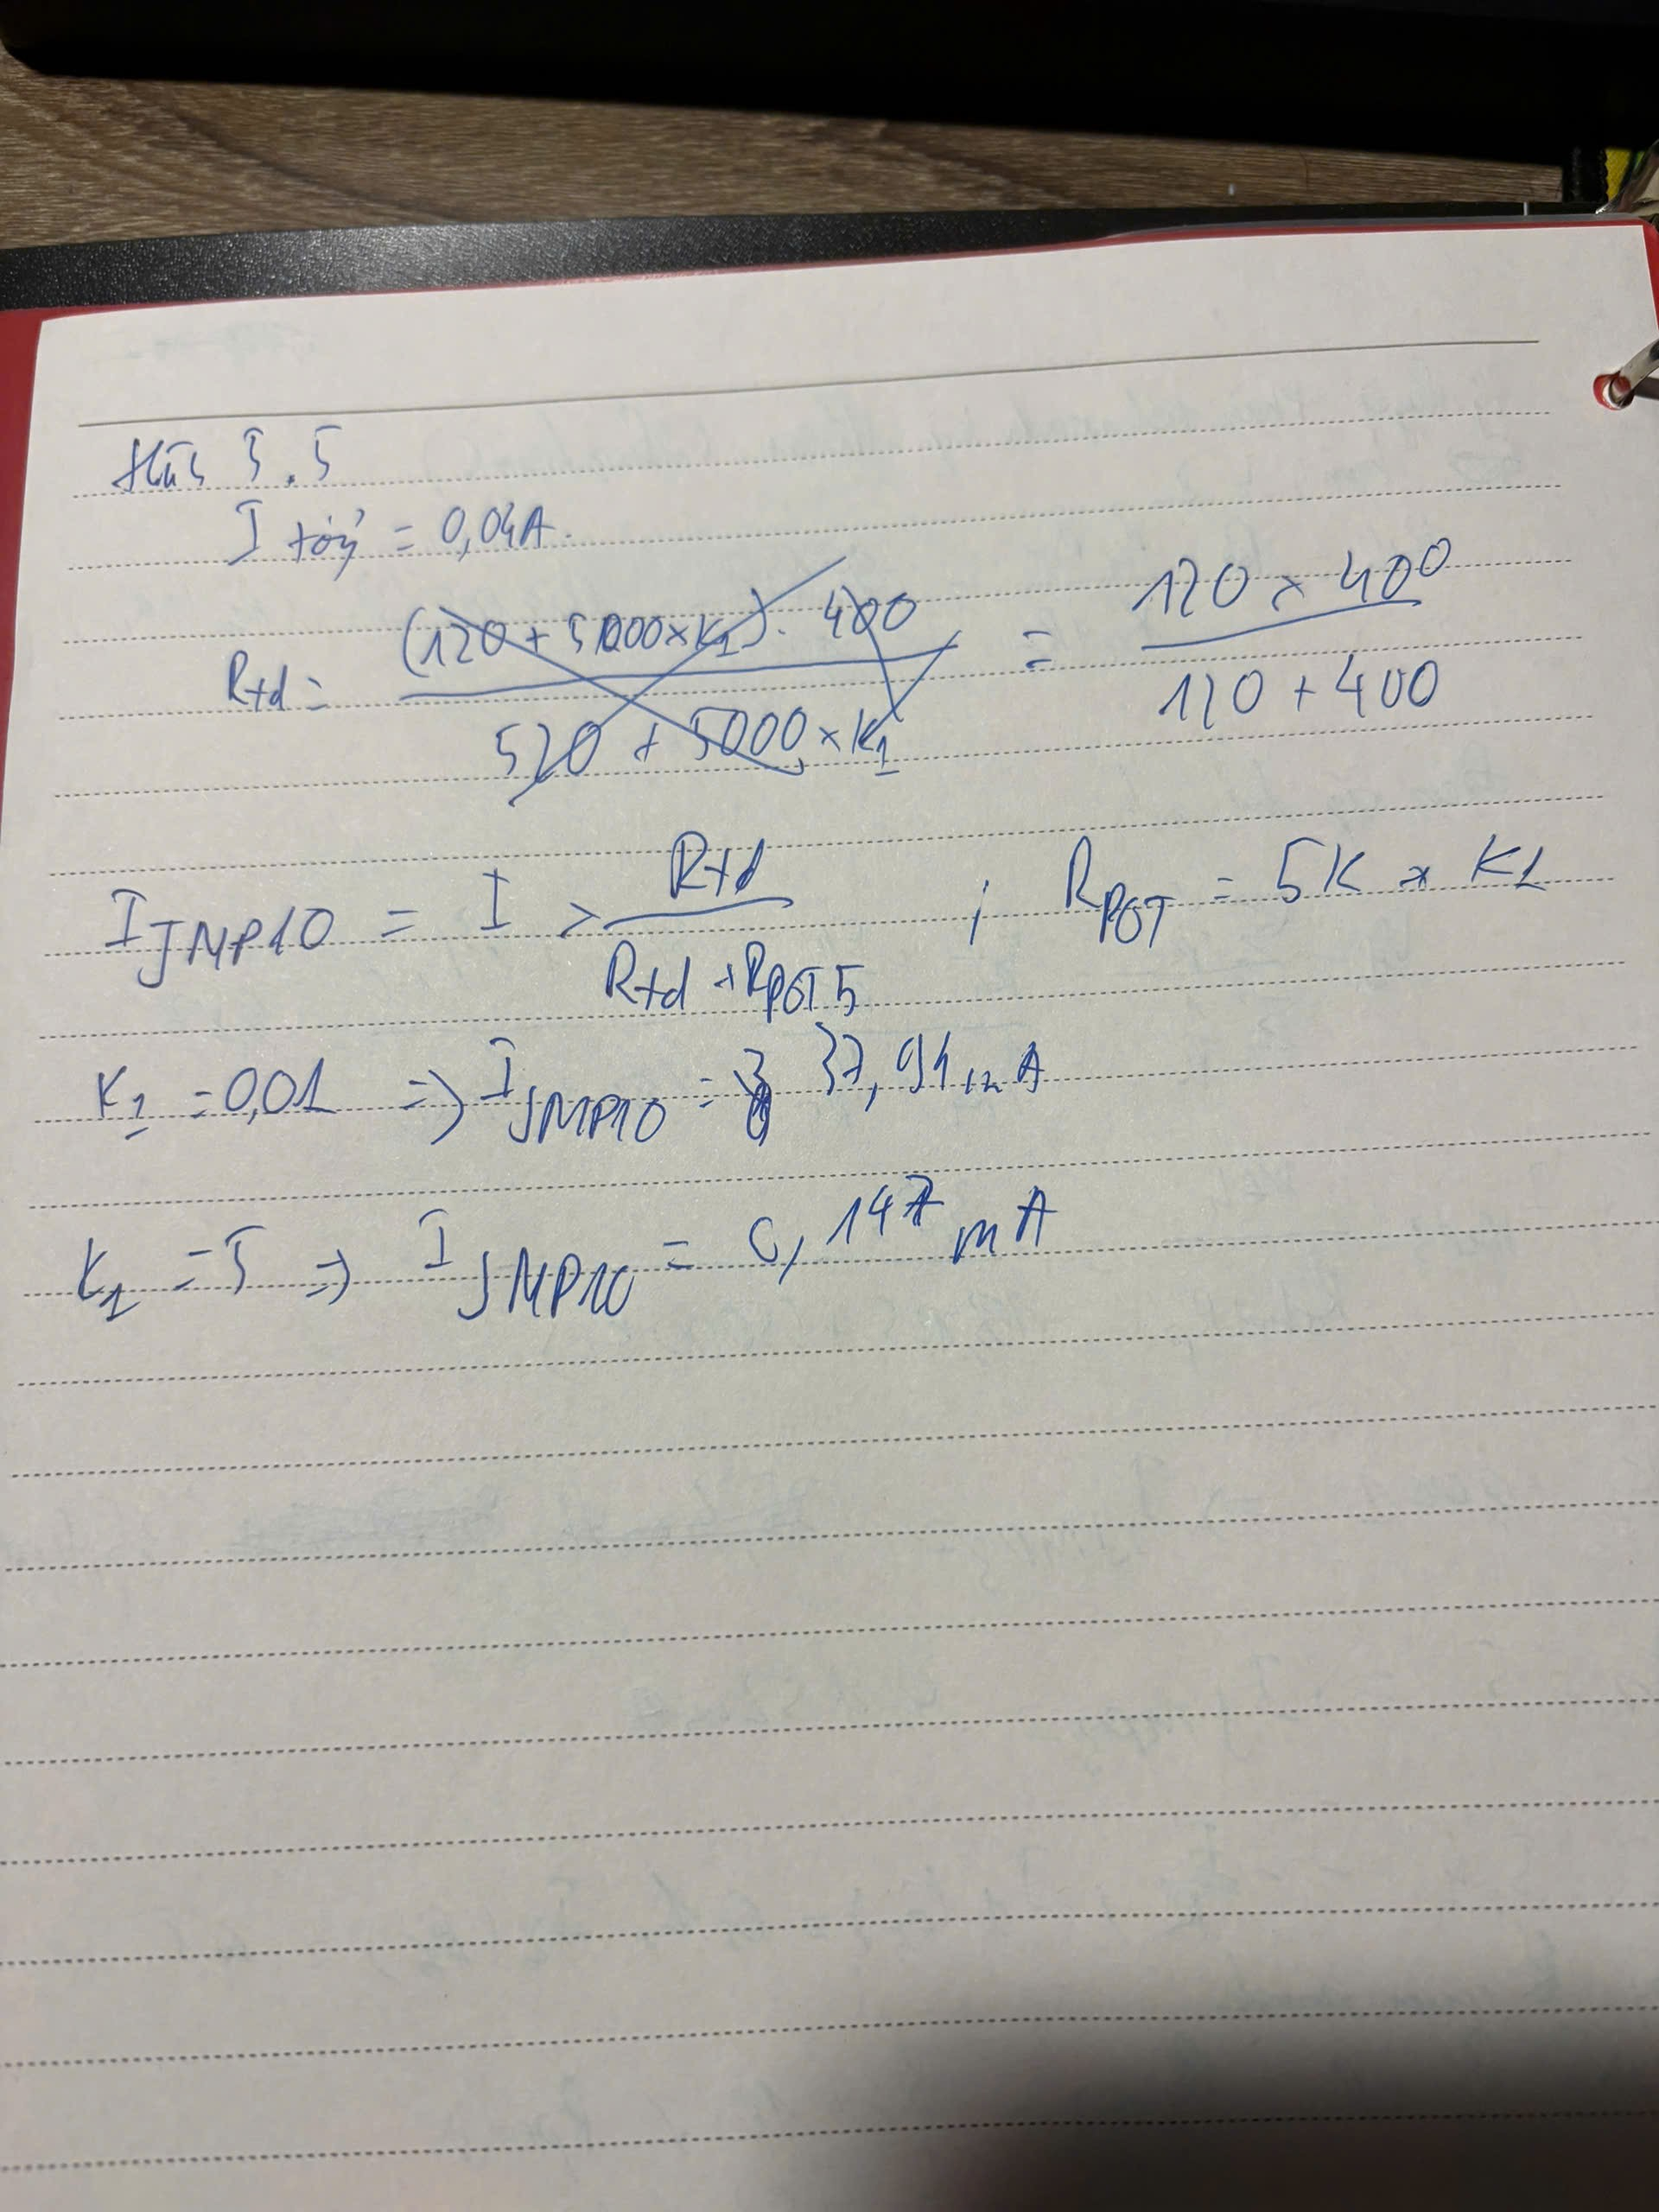 Hình 5.5
I tổng = 0,04A.
Rtd = (120 + 5000×K1) . 400 / 520 + 5000×K1 = 120 × 400 / 120 + 400
I JMP10 = I × Rtd / Rtd + RPOT5 ; RPOT = 5K × K1
K1 = 0,01 => I JMP10 = 37,94 mA
K1 = 5 => I JMP10 = 0,147 mA